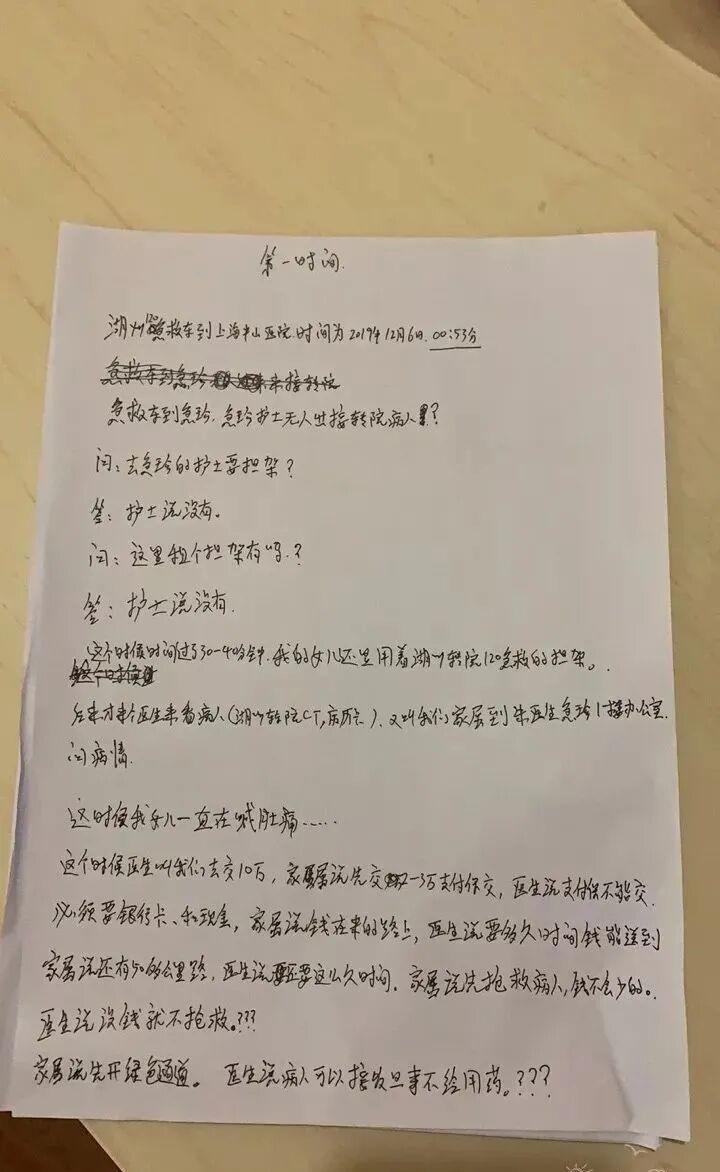 第一时间.
湖州120急救车到上海中山医院.时间为2019年12月6日.00:53分
急救车到急珍 来接转院
急救车到急珍.急珍护士无人出接转院病人??
问:去急珍的护士要担架?
答:护士说没有。
问:这里租个担架有吗.?
答:护士说没有.
这个时侯时间过了30-40分钟.我的女儿还是用着湖州转院120急救的担架。.
这个时侯
后来才来个医生来看病人(湖州转院CT,病历卡).又叫我们家属到朱医生急珍1楼办公室.
问病情.
这时侯我女儿一直在喊肚痛......
这个时侯医生叫我们去交10万,家属说先交2-3万支付保交,医生说支付保不能交.
必须要银行卡、和现金,家属说钱在来的路上,医生说要多久时间钱能送到
家属说还有50多公里路,医生说要这么久时间.家属说先抢救病人,钱不会少的。
医生说没钱就不抢救。???
家属说先开绿色通道。 医生说病人可以接收但事不给用药。???